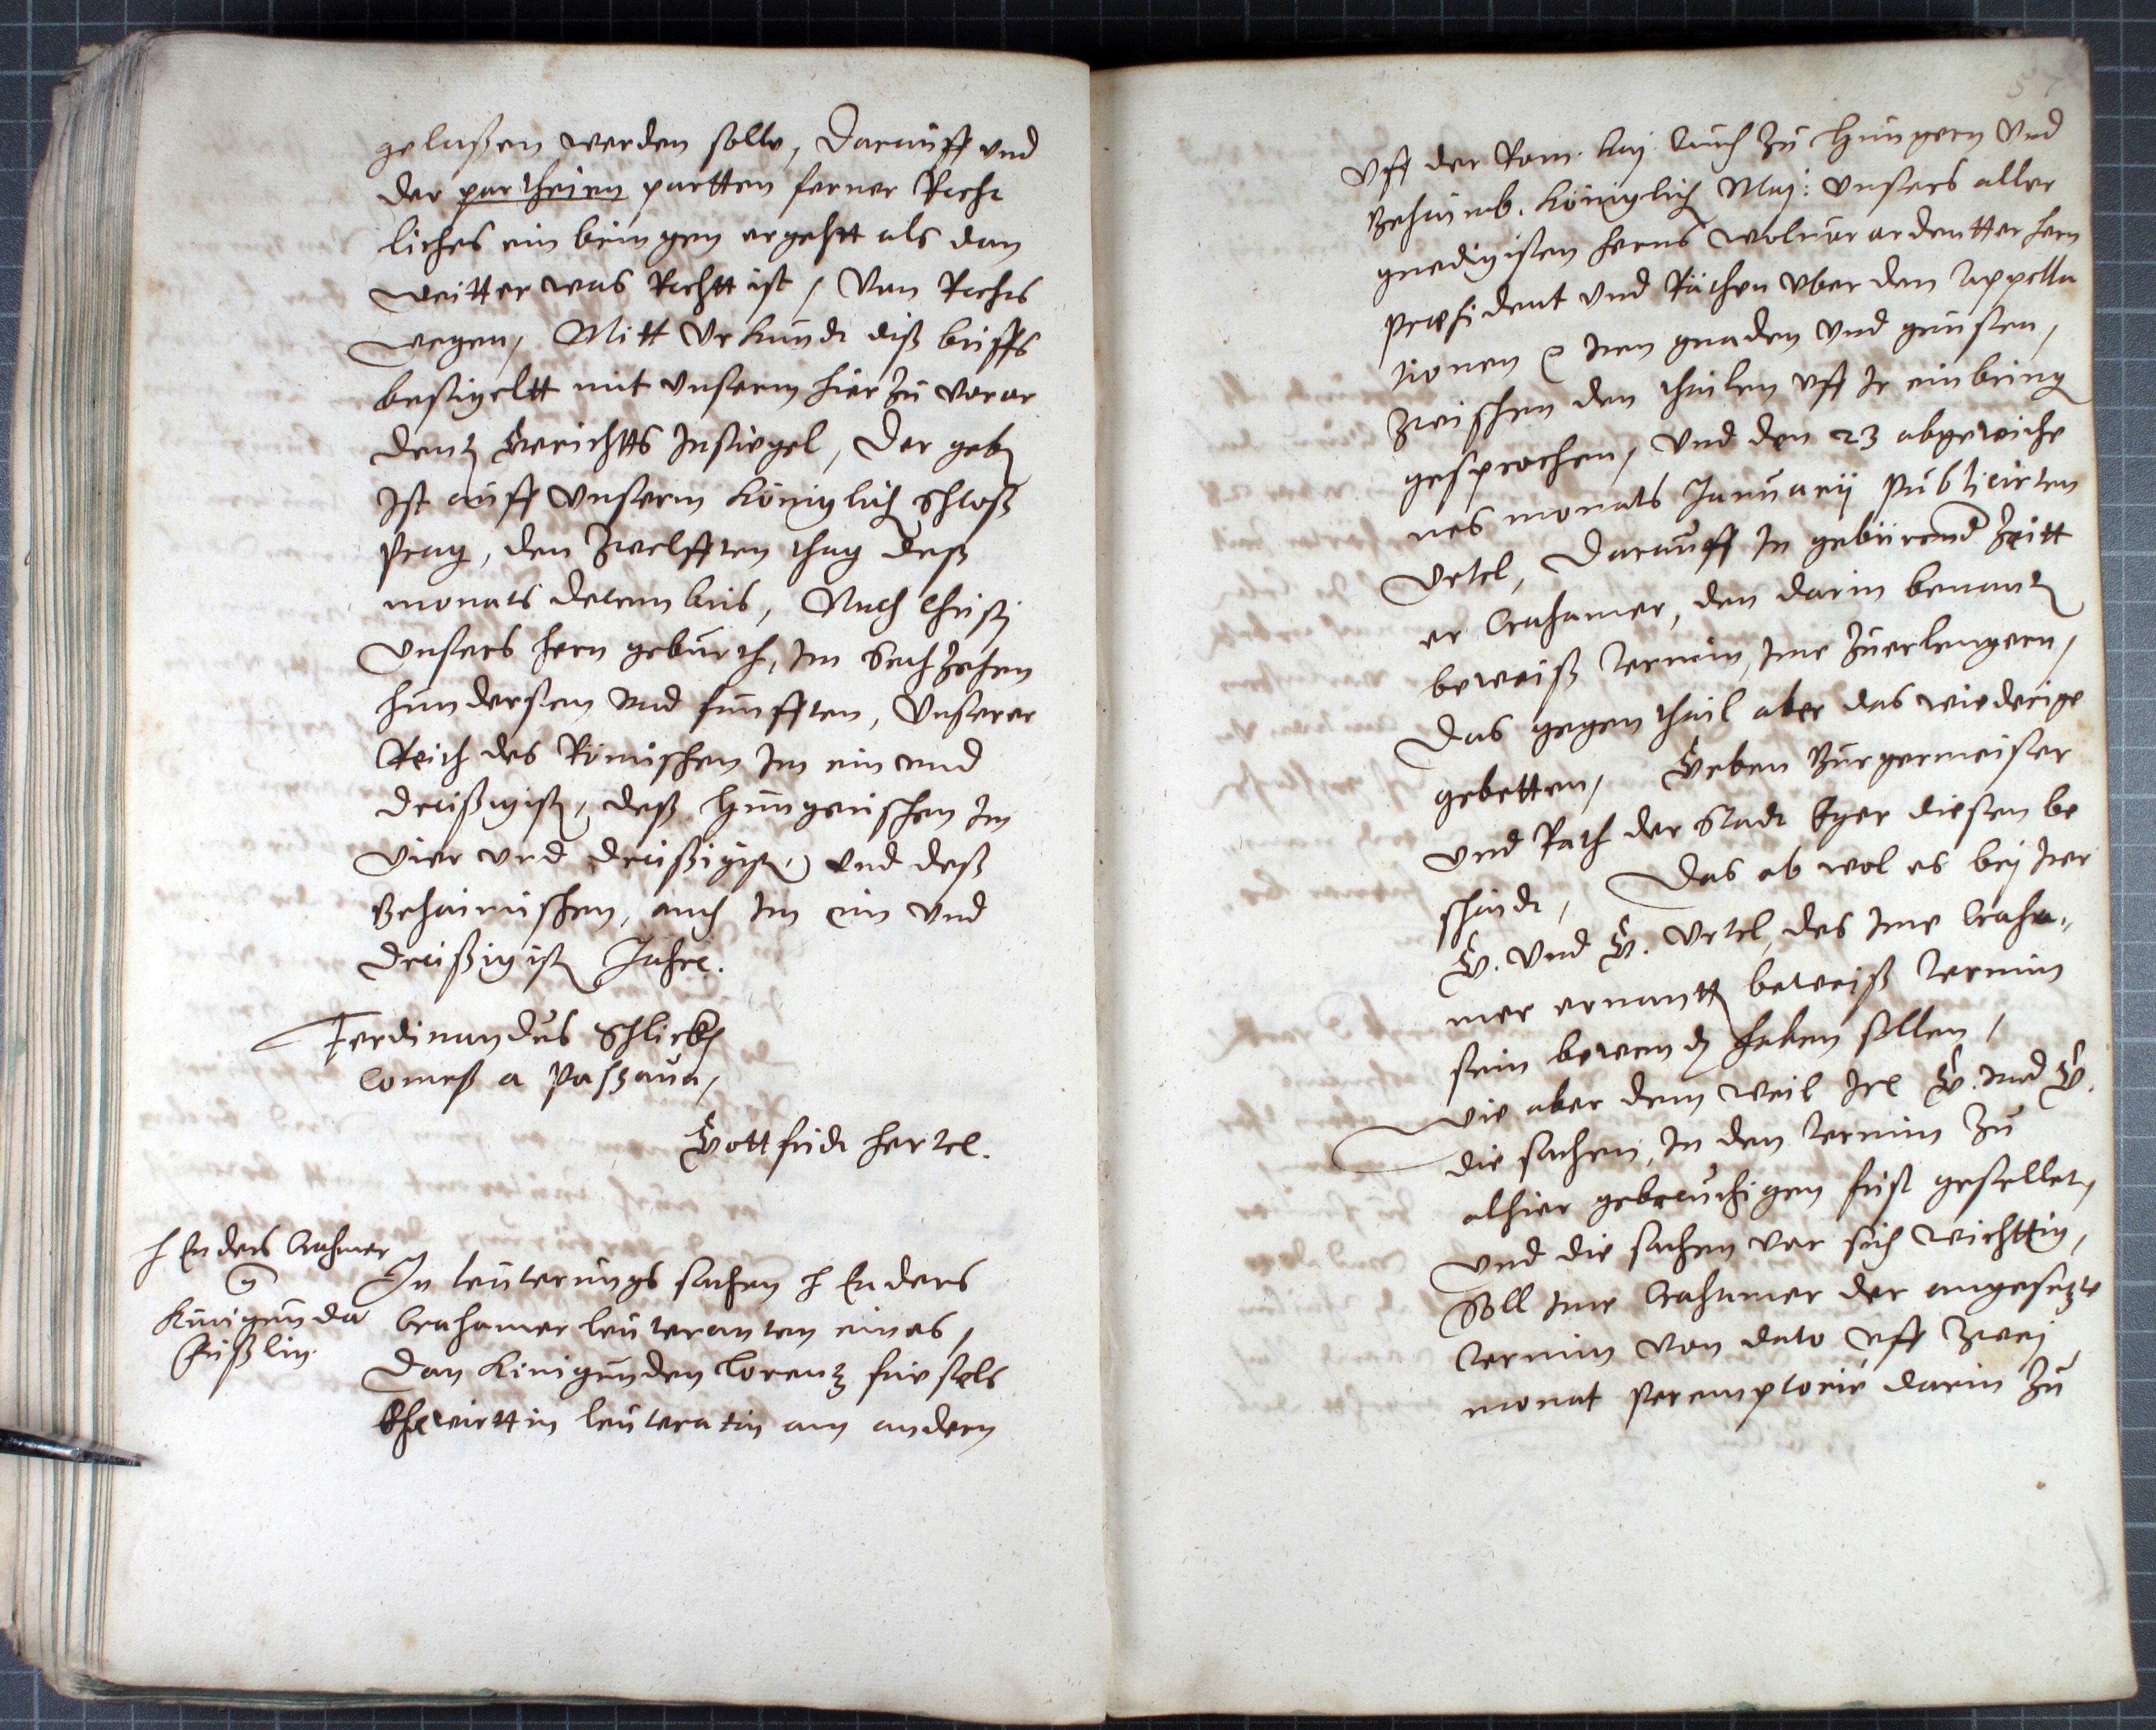 gelaßen werden solle, Darauff vnd
der partheien partten ferner Recht
liches ein bringen ergehtt als dan
weitter was Rechtt ist, Von Rechts
wegen, Mitt Vrkundt diß brieffs
besigeltt mit vnserm hier zu veror
denten Gerichtts Insiegel, Der geben
Ist auff Vnserm Königlich Schloß
Prag, den Zwelfften thag deß
monats decembris, Nach Christi
Vnsers hern geburth, Im Sechzehen
hundersten vnd funfften, Vnserer
Reich des Römischen Im ein vnd
dreißigisten, deß Hungerischen Im
Vier vnd dreißigisten, vnd deß
Behaimischen, auch Im ein vnd
dreißigisten Jahre.
Ferdinandus Schlick
Comeß a Paßaun,
Gottfridt Hertel.
H Enders Crahmer
Kunigunda
Füßlin
In leuterungs sachen H Enders
Crahamer leuteranten eines,
Dan Kinigunden Lorentz Fuessels
Ehewirttin leuteratin am andern
Vff der Röm. Kay. Auch zu Hungern Vnd
Behaimb. Königlich May: Vnsers aller
gnedigisten herns wolverordentter hern
President Vnd Räthen vber den Appella
tionen iren gnaden Vnd gunsten,
zwischen den theilen vff Ir einbring
gesprochen, Vnd den 23 abgewiche
nes monats Januarij publicirten
Vrtel, Darauff In gebürend Zeitt
er Crahamer, den darin benanten
beweiß Termin, Ime zuerlengern,
Das gegentheil aber das wiederige
gebetten, Geben Burgermeister
Vnd Rath der Stadt Eger diesen be
scheidt, Das ob wol es bey Irer
G. Vnd G. Vrtel, des Ime Craha,
mer ernantten beweiß Termin
sein bewenden haben sollen,
Die aber dem weil Ire G. vnd G.
die sachen, In den Termin zu
alhier gebreuchigen frist gestellet,
Vnd die sachen vor sich wichttig,
Soll Ime Crahamer der angesetzte
Termin von dato vff zwey
monat peremptorie darin zu